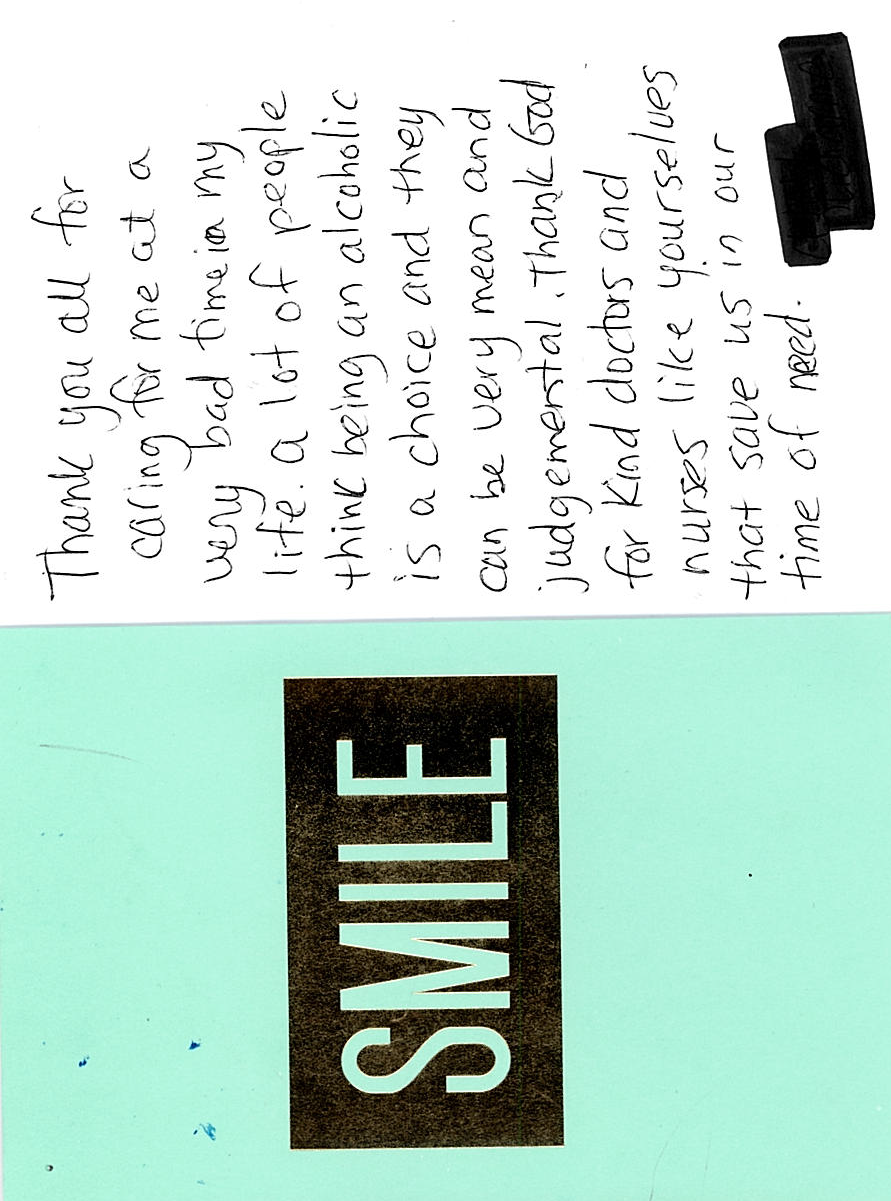 Thank you all for
caring for me at a
very bad time in my
life. a lot of people
think being an alcoholic
is a choice and they
can be very mean and
judgemental. Thank God
for kind doctors and
nurses like yourselves
that save us in our
time of need.
SMILE